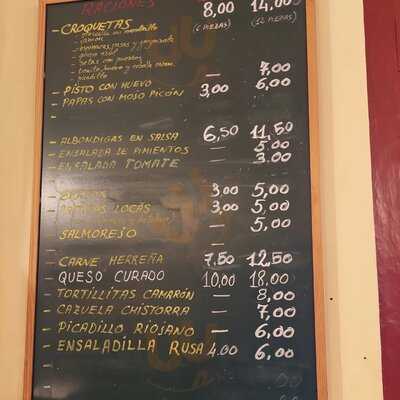 RACIONES 8,00 14,00
- CROQUETAS (6 PIEZAS) (12 PIEZAS)
- jamón
- picadillo
- PISTO CON HUEVO — 7,00
- PAPAS CON MOJO PICÓN 3,00 6,00
- ALBONDIGAS EN SALSA 6,50 11,50
- ENSALADA DE PIMIENTOS — 5,00
- ENSALADA TOMATE — 3,00
3,00 5,00
LOCAS 3,00 5,00
- SALMOREJO — 5,00
- CARNE HERREÑA 7,50 12,50
- QUESO CURADO 10,00 18,00
- TORTILLITAS CAMARÓN — 8,00
- CAZUELA CHISTORRA — 7,00
- PICADILLO RIOJANO — 6,00
- ENSALADILLA RUSA 4.00 6,00